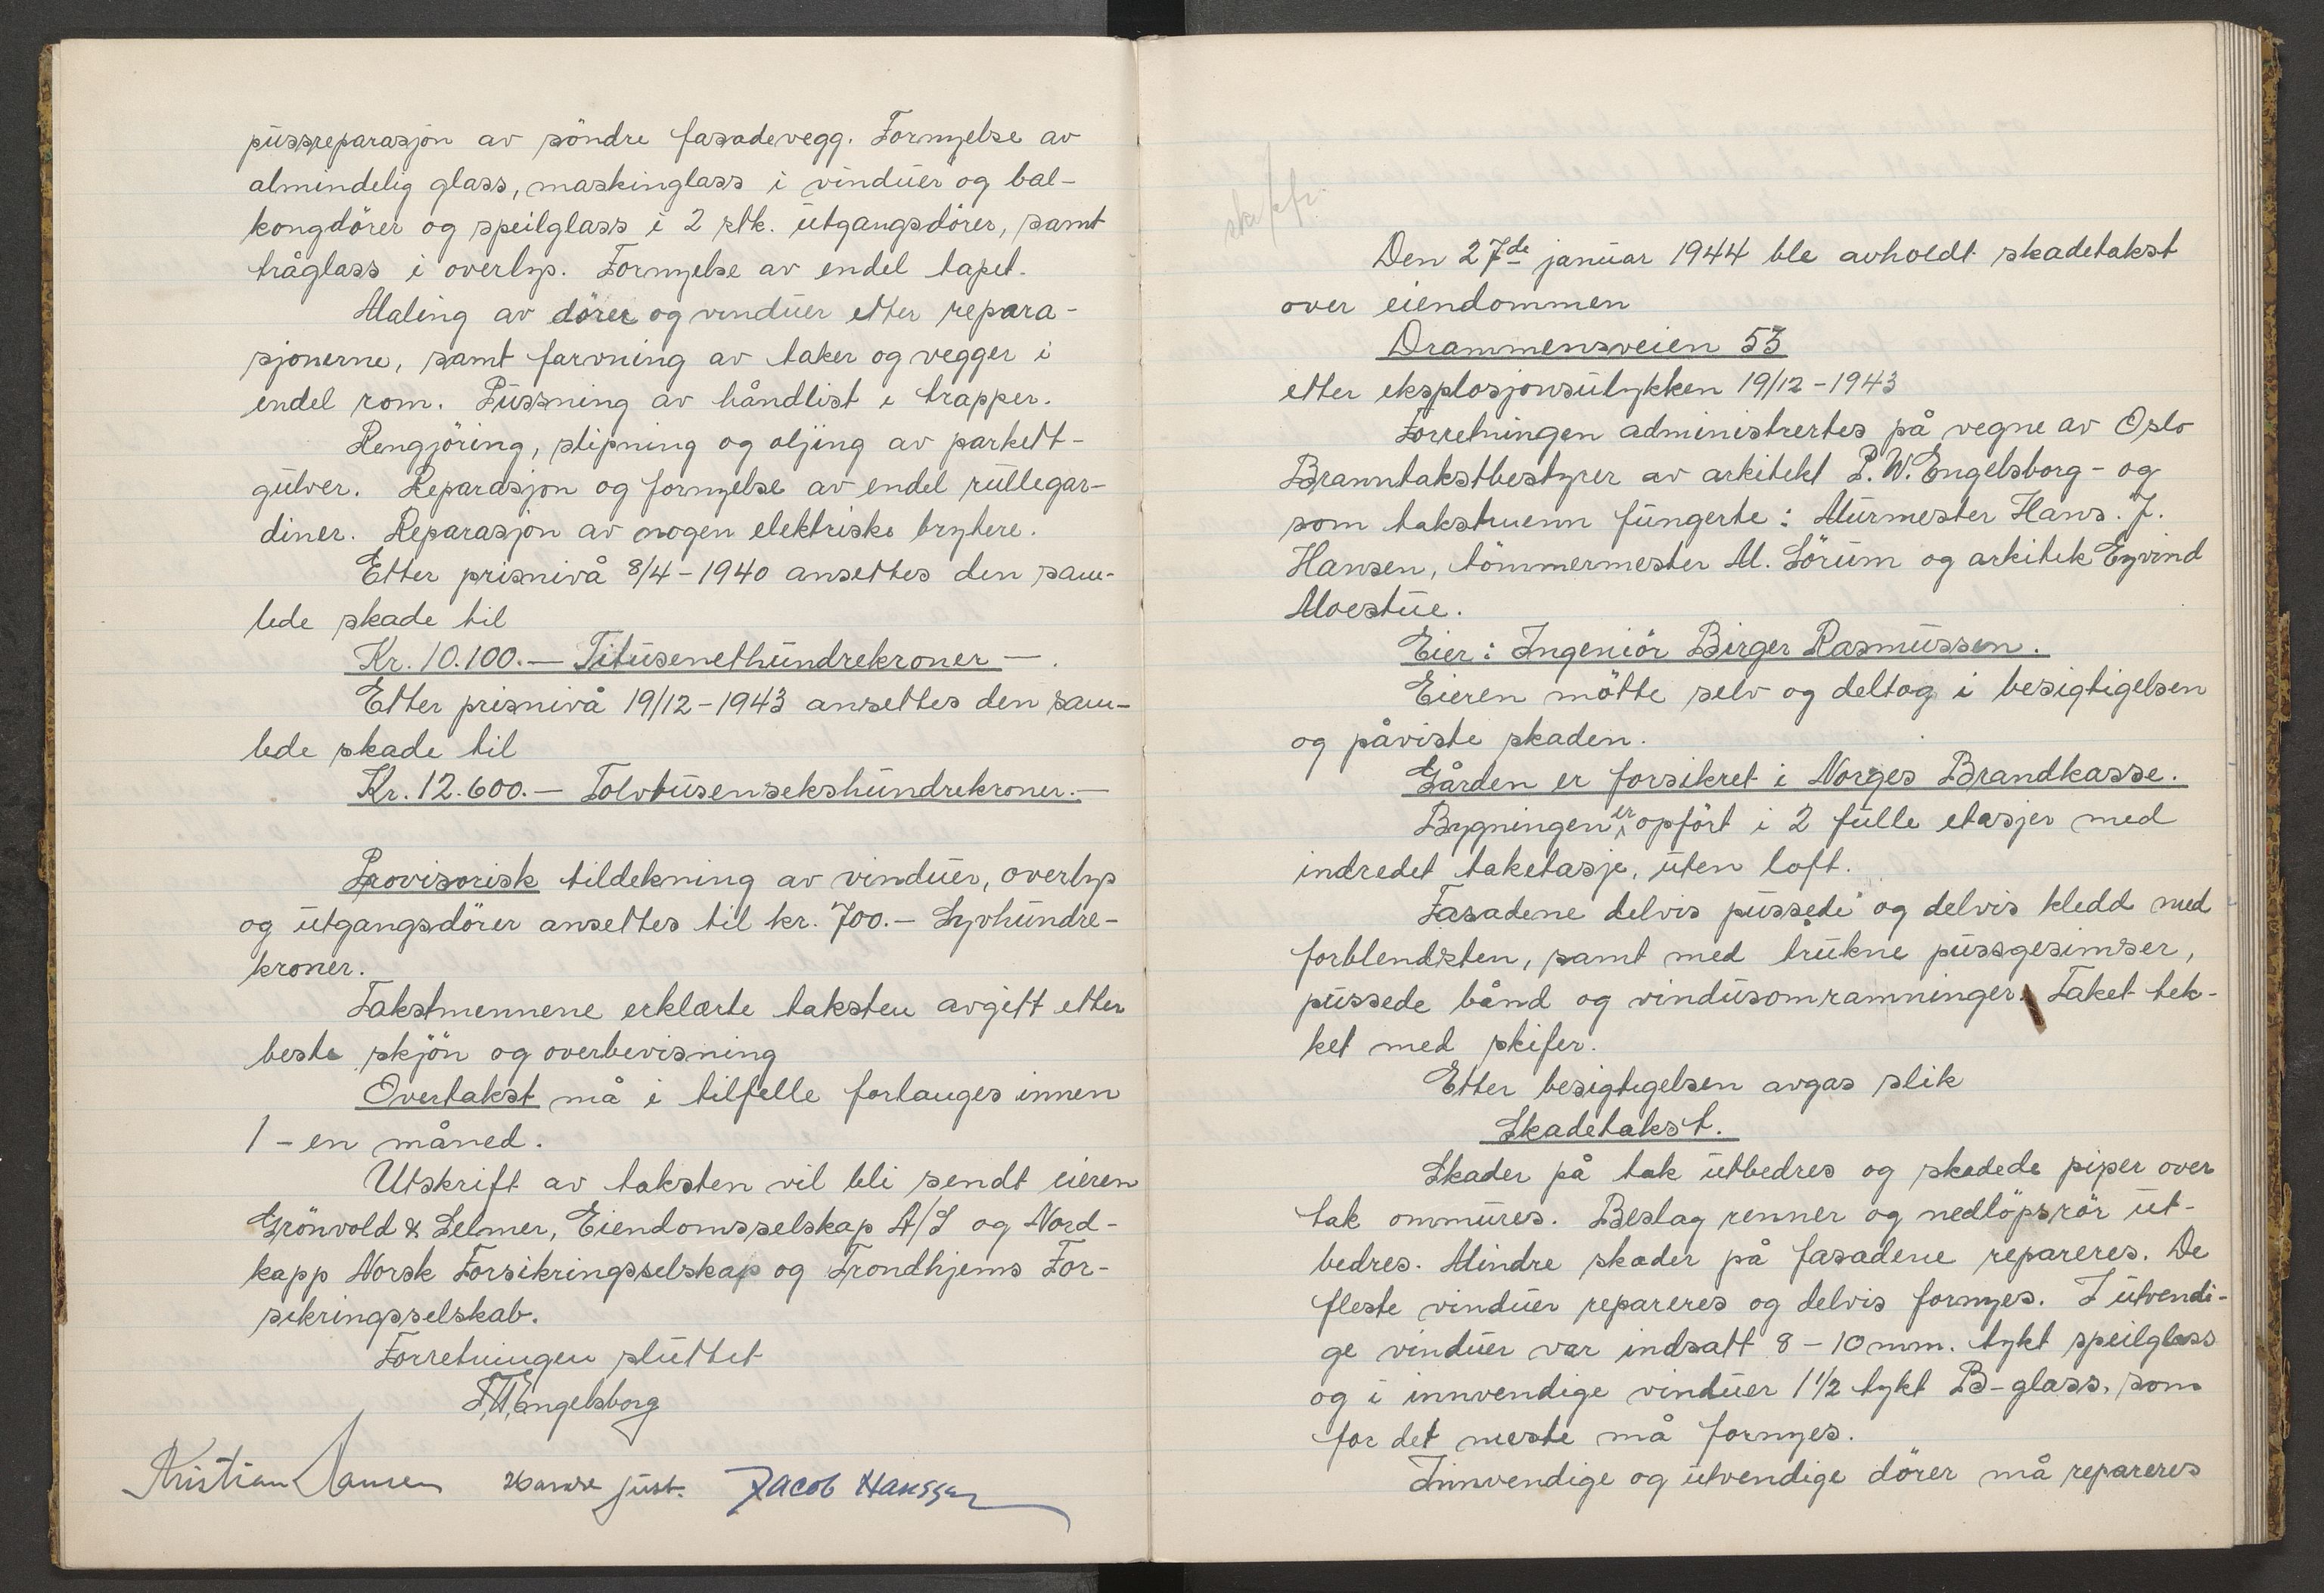 pussreparasjon av söndre fasadevegg. Fornyelse av
almindelig glass, maskinglass i vinduer og bal-
kongdörer og speilglass i 2 stk. utgangsdörer, samt
tråglass i overlys. Fornyelse av endel tapet.
Maling av dörer og vinduer etter repara-
sjonerne, samt farvning av taker og vegger i
endel rom. Pussning av håndlist i trapper.
Rengjöring, slipning og oljing av parkett-
gulver. Reparasjon og fornyelse av endel rullegar-
diner. Reparasjon av nogen elektriske brytere.
Etter prisnivå 8/4-1940 ansettes den sam-
lede skade til
Kr. 10.100.— Titusenethundrekroner —.
Etter prisnivå 19/12-1943 ansettes den sam-
lede skade til
Kr. 12.600.— Tolvtusensekshundrekroner.—
Provisorisk tildekning av vinduer, overlys
og utgangsdörer ansettes til kr. 700.— Syvhundre-
kroner.
Takstmennene erklærte taksten avgitt etter
beste skjön og overbevisning
Overtakst må i tilfelle forlanges innen
1 - en måned.
Utskrift av taksten vil bli sendt eieren
Grönvold & Selmer, Eiendomsselskap A/S og Nord-
kapp Norsk Forsikringsselskap og Trondhjems For-
sikringsselskab.
Forretningen sluttet
P.W.Engelsborg
Kristian Hansen just. Jacob Hanssen
Den 27de januar 1944 ble avholdt skadetakst
over eiendommen
Drammensveien 53
etter eksplosjonsulykken 19/12-1943
Forretningen administrertes på vegne av Oslo
Branntakstbestyrer av arkitekt P.W. Engelsborg - og
som takstmenn fungerte: Murmester Hans. J.
Hansen, tömmermester M. Sörum og arkitek Eyvind
Moestue.
Eier: Ingeniör Birger Rasmussen.
Eieren mötte selv og deltog i besigtigelsen
og påviste skaden.
Gården er forsikret i Norges Brandkasse.
Bygningen er opfört i 2 fulle etasjer med
indredet taketasje, uten loft.
Fasadene delvis pussede og delvis kledd med
forblendsten, samt med trukne pussgesimser,
pussede bånd og vindusomramninger. Taket tek-
ket med skifer.
Etter besigtigelsen avgas slik
Skadetakst.
Skader på tak utbedres og skadede piper over
tak ommures. Beslag renner og nedlöpsrör ut-
bedres. Mindre skader på fasadene repareres. De
fleste vinduer repareres og delvis fornyes. I utvendi-
ge vinduer var indsatt 8-10 mm. tykt speilglass
og i innvendige vinduer 1 1/2 tykt B-glass, som
for det meste må fornyes.
Innvendige og utvendige dörer må repareres